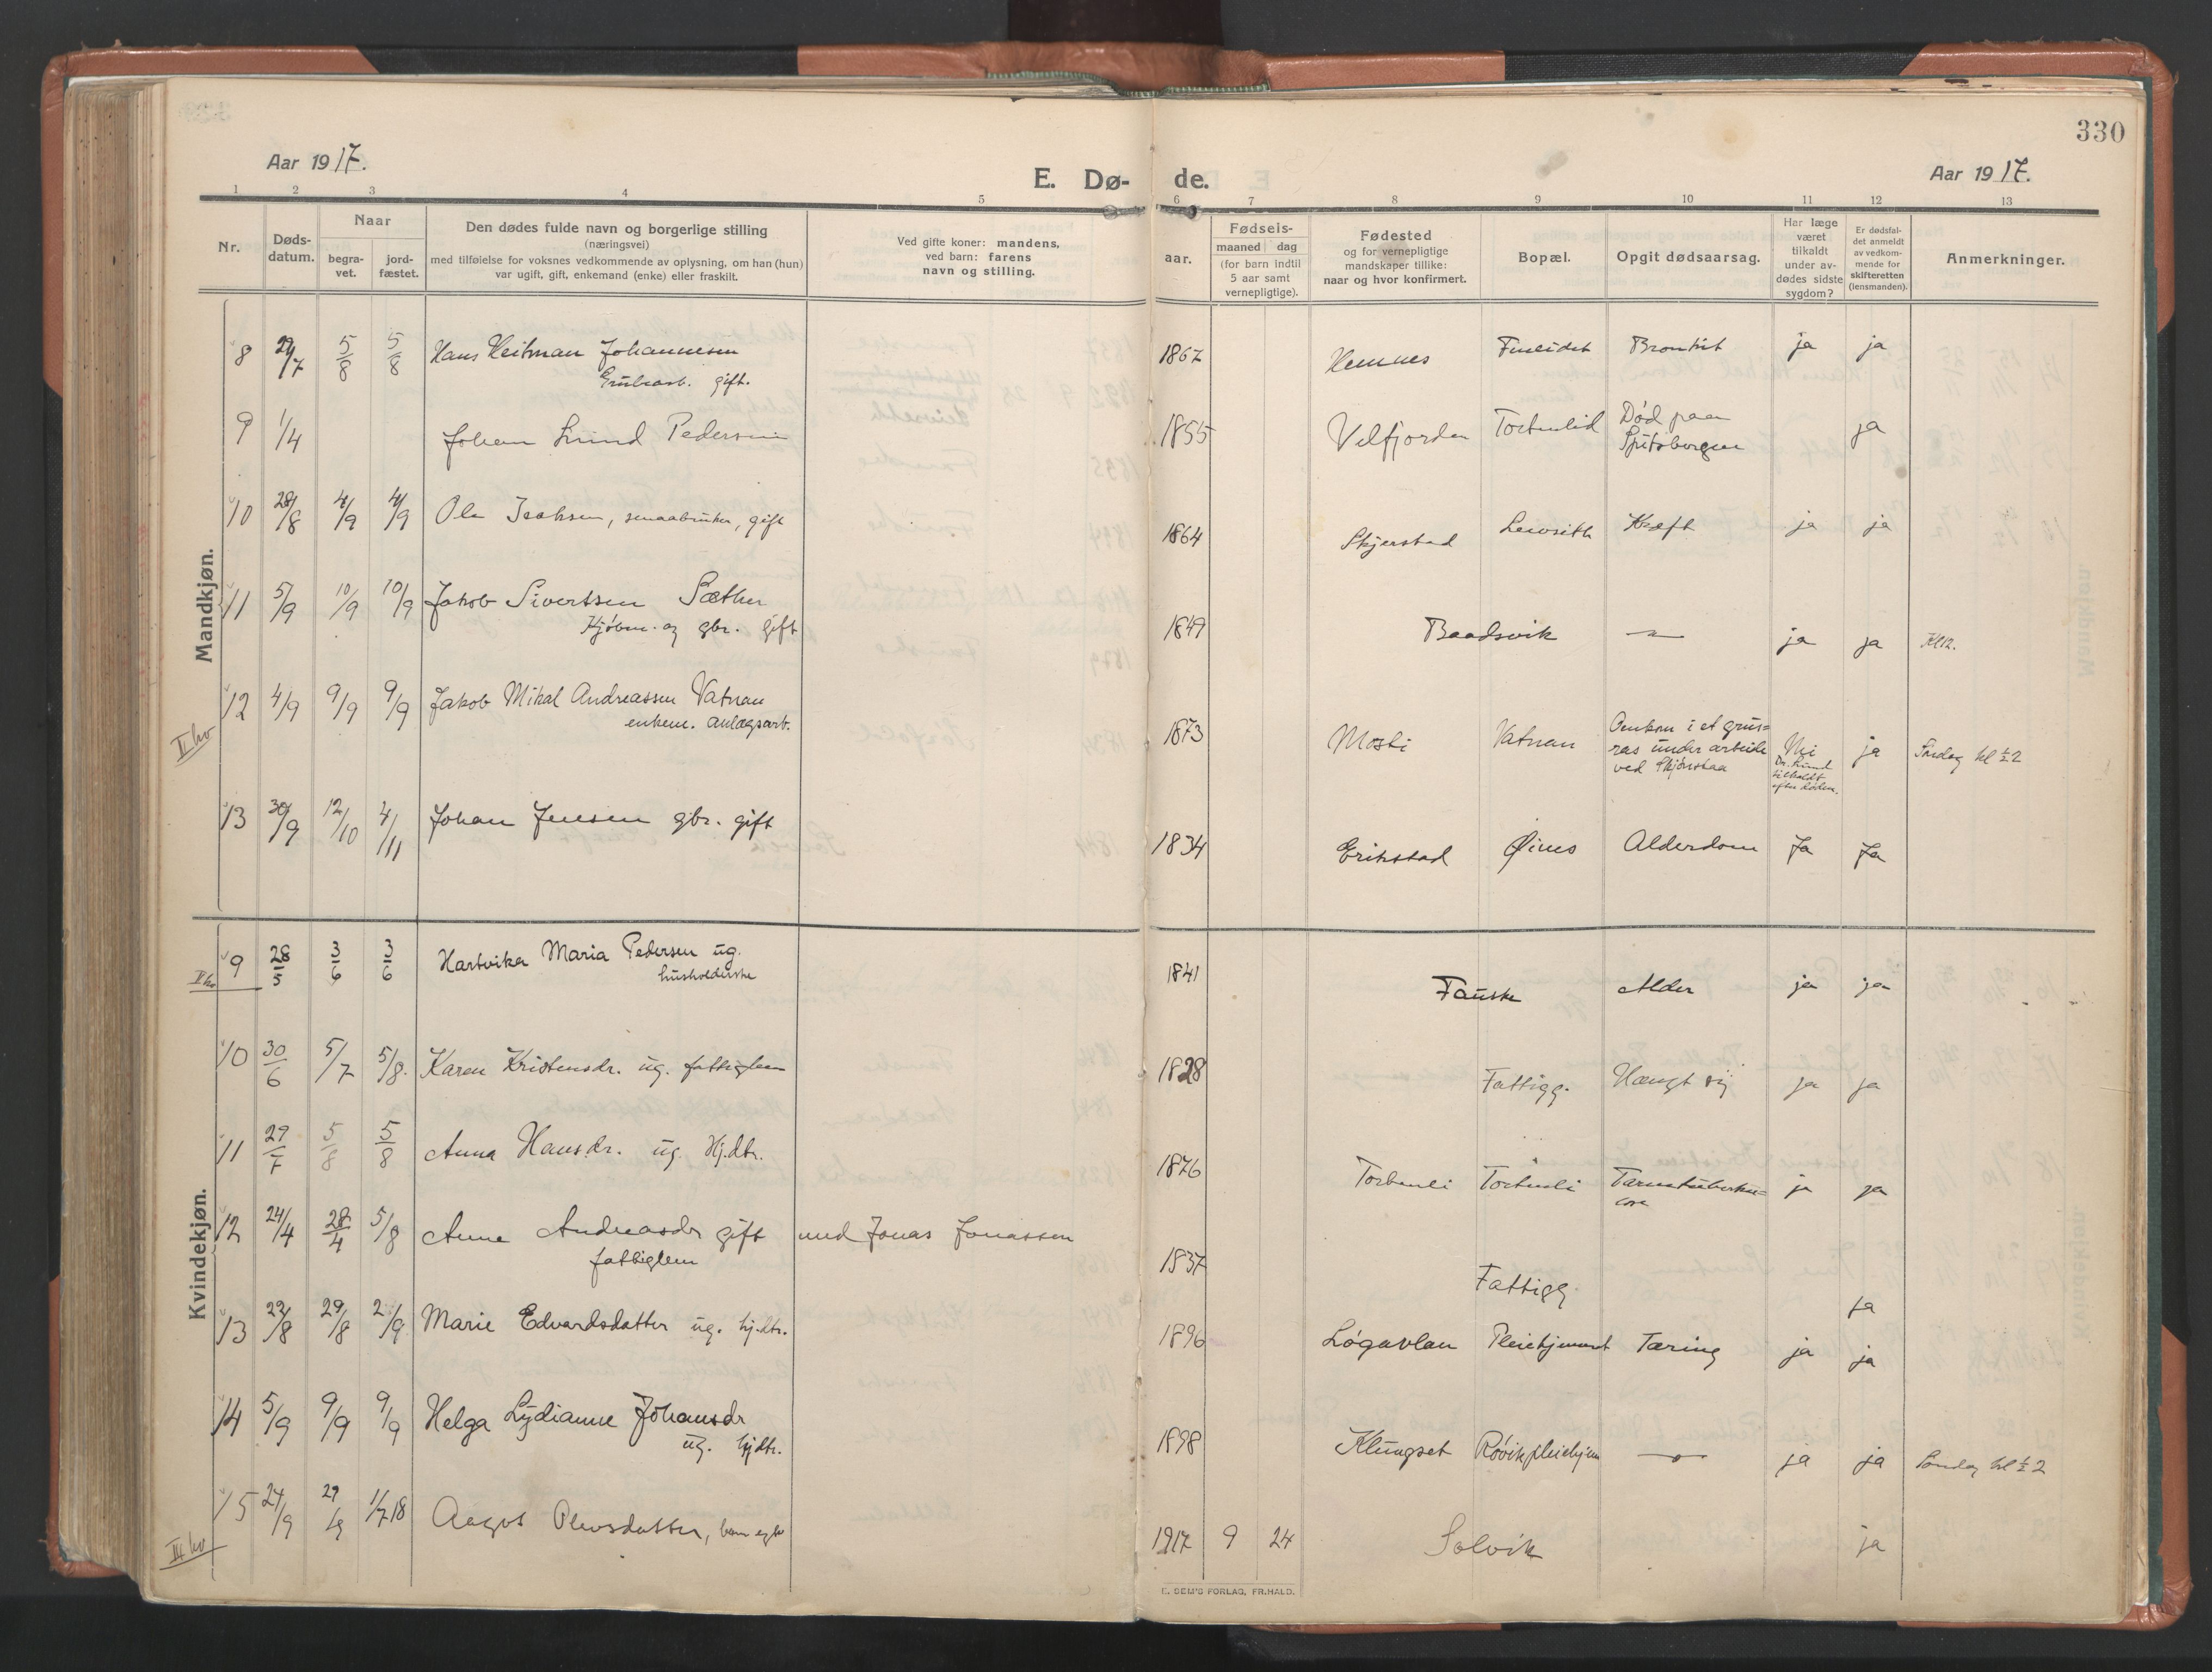 330
Aar 1917.
E. Dø-
de.
Aar 1917.
1 2 3 4 5 6 7 8 9 10 11 12 13
Nr.
Døds-
datum.
Naar
begra-
vet.
jord-
fæstet.
Den dødes fulde navn og borgerlige stilling
(næringsvei)
med tilføielse for voksnes vedkommende av oplysning, om han (hun)
var ugift, gift, enkemand (enke) eller fraskilt.
Ved gifte koner: mandens,
ved barn: farens
navn og stilling.
aar.
Fødsels-
maaned dag
(for barn indtil
5 aar samt
vernepligtige).
Fødested
og for vernepligtige
mandskaper tillike:
naar og hvor konfirmert.
Bopæl.
Opgit dødsaarsag.
Har læge
været
tilkaldt
under av-
dødes sidste
sygdom?
Er dødsfal-
det anmeldt
av vedkom-
mende for
skifteretten
(lensmanden).
Anmerkninger.
Mandkjøn.
8 29/7 5/8 5/8 Hans Heitman Johannesen 1867 Hemnes Fineidet Bronkit ja ja
Grubearb. gift.
9 1/4 Johan Lund Pedersen 1855 Velfjorden Tortenlid Død paa ja
Spitsbergen
10 28/8 4/9 4/9 Ole Isaksen, smaabruker, gift 1864 Skjerstad Kræft ja ja
11 5/9 10/9 10/9 Jakob Sivertsen Sæther 1849 Baadsvik —"— ja ja Kl 12.
Kjøbm. og gbr. gift
12 4/9 9/9 9/9 Jakob Mikal Andreassen Vatnan 1873 Mosti Vatnan Omkom i et grus=
enkem. anlægsarb.
ras under arbeide Nei ja Søndag kl ½2
ved Skjønstaa
Dr. Lund
tilkaldt
efter døden.
II ho
13 30/9 12/10 4/11 Johan Jensen gbr. gift 1834 Erikstad Øines Alderdom Ja Ja
Kvindekjøn.
9 28/5 3/6 3/6 Hartvika Maria Pedersen ug. 1841 Fauske Alder ja ja
husholderske
II ho
10 30/6 5/7 5/8. Karen Kristensdr. ug. fattiglem 1828 Fattigg. Hængt sig ja ja
11 29/7 5/8 5/8 Anna Hansdr. ug. Hj.dtr. 1876 Tortenli Tortenli Tarmtuberku= ja ja
lose
12 24/4 28/4 5/8 Anne Andreasdr gift med Jonas Jonassen 1837 Fattigg. ja
fattiglem
13 22/8 29/8 2/9 Marie Edvardsdatter ug. hj.dtr. 1896 Løgavlan Pleiehjemmet Tæring ja ja
14 5/9 9/9 9/9 Helga Lydianne Johansdr 1898 Klungset Røvik pleiehjem —"— ja ja Søndag kl ½2
ug. hjdtr.
15 24/9 29/9 1/7 18 Aagot Olivsdatter, barn 1917 9 24 Solvik ja
III ho
E. SEM'S FORLAG, FR.HALD.